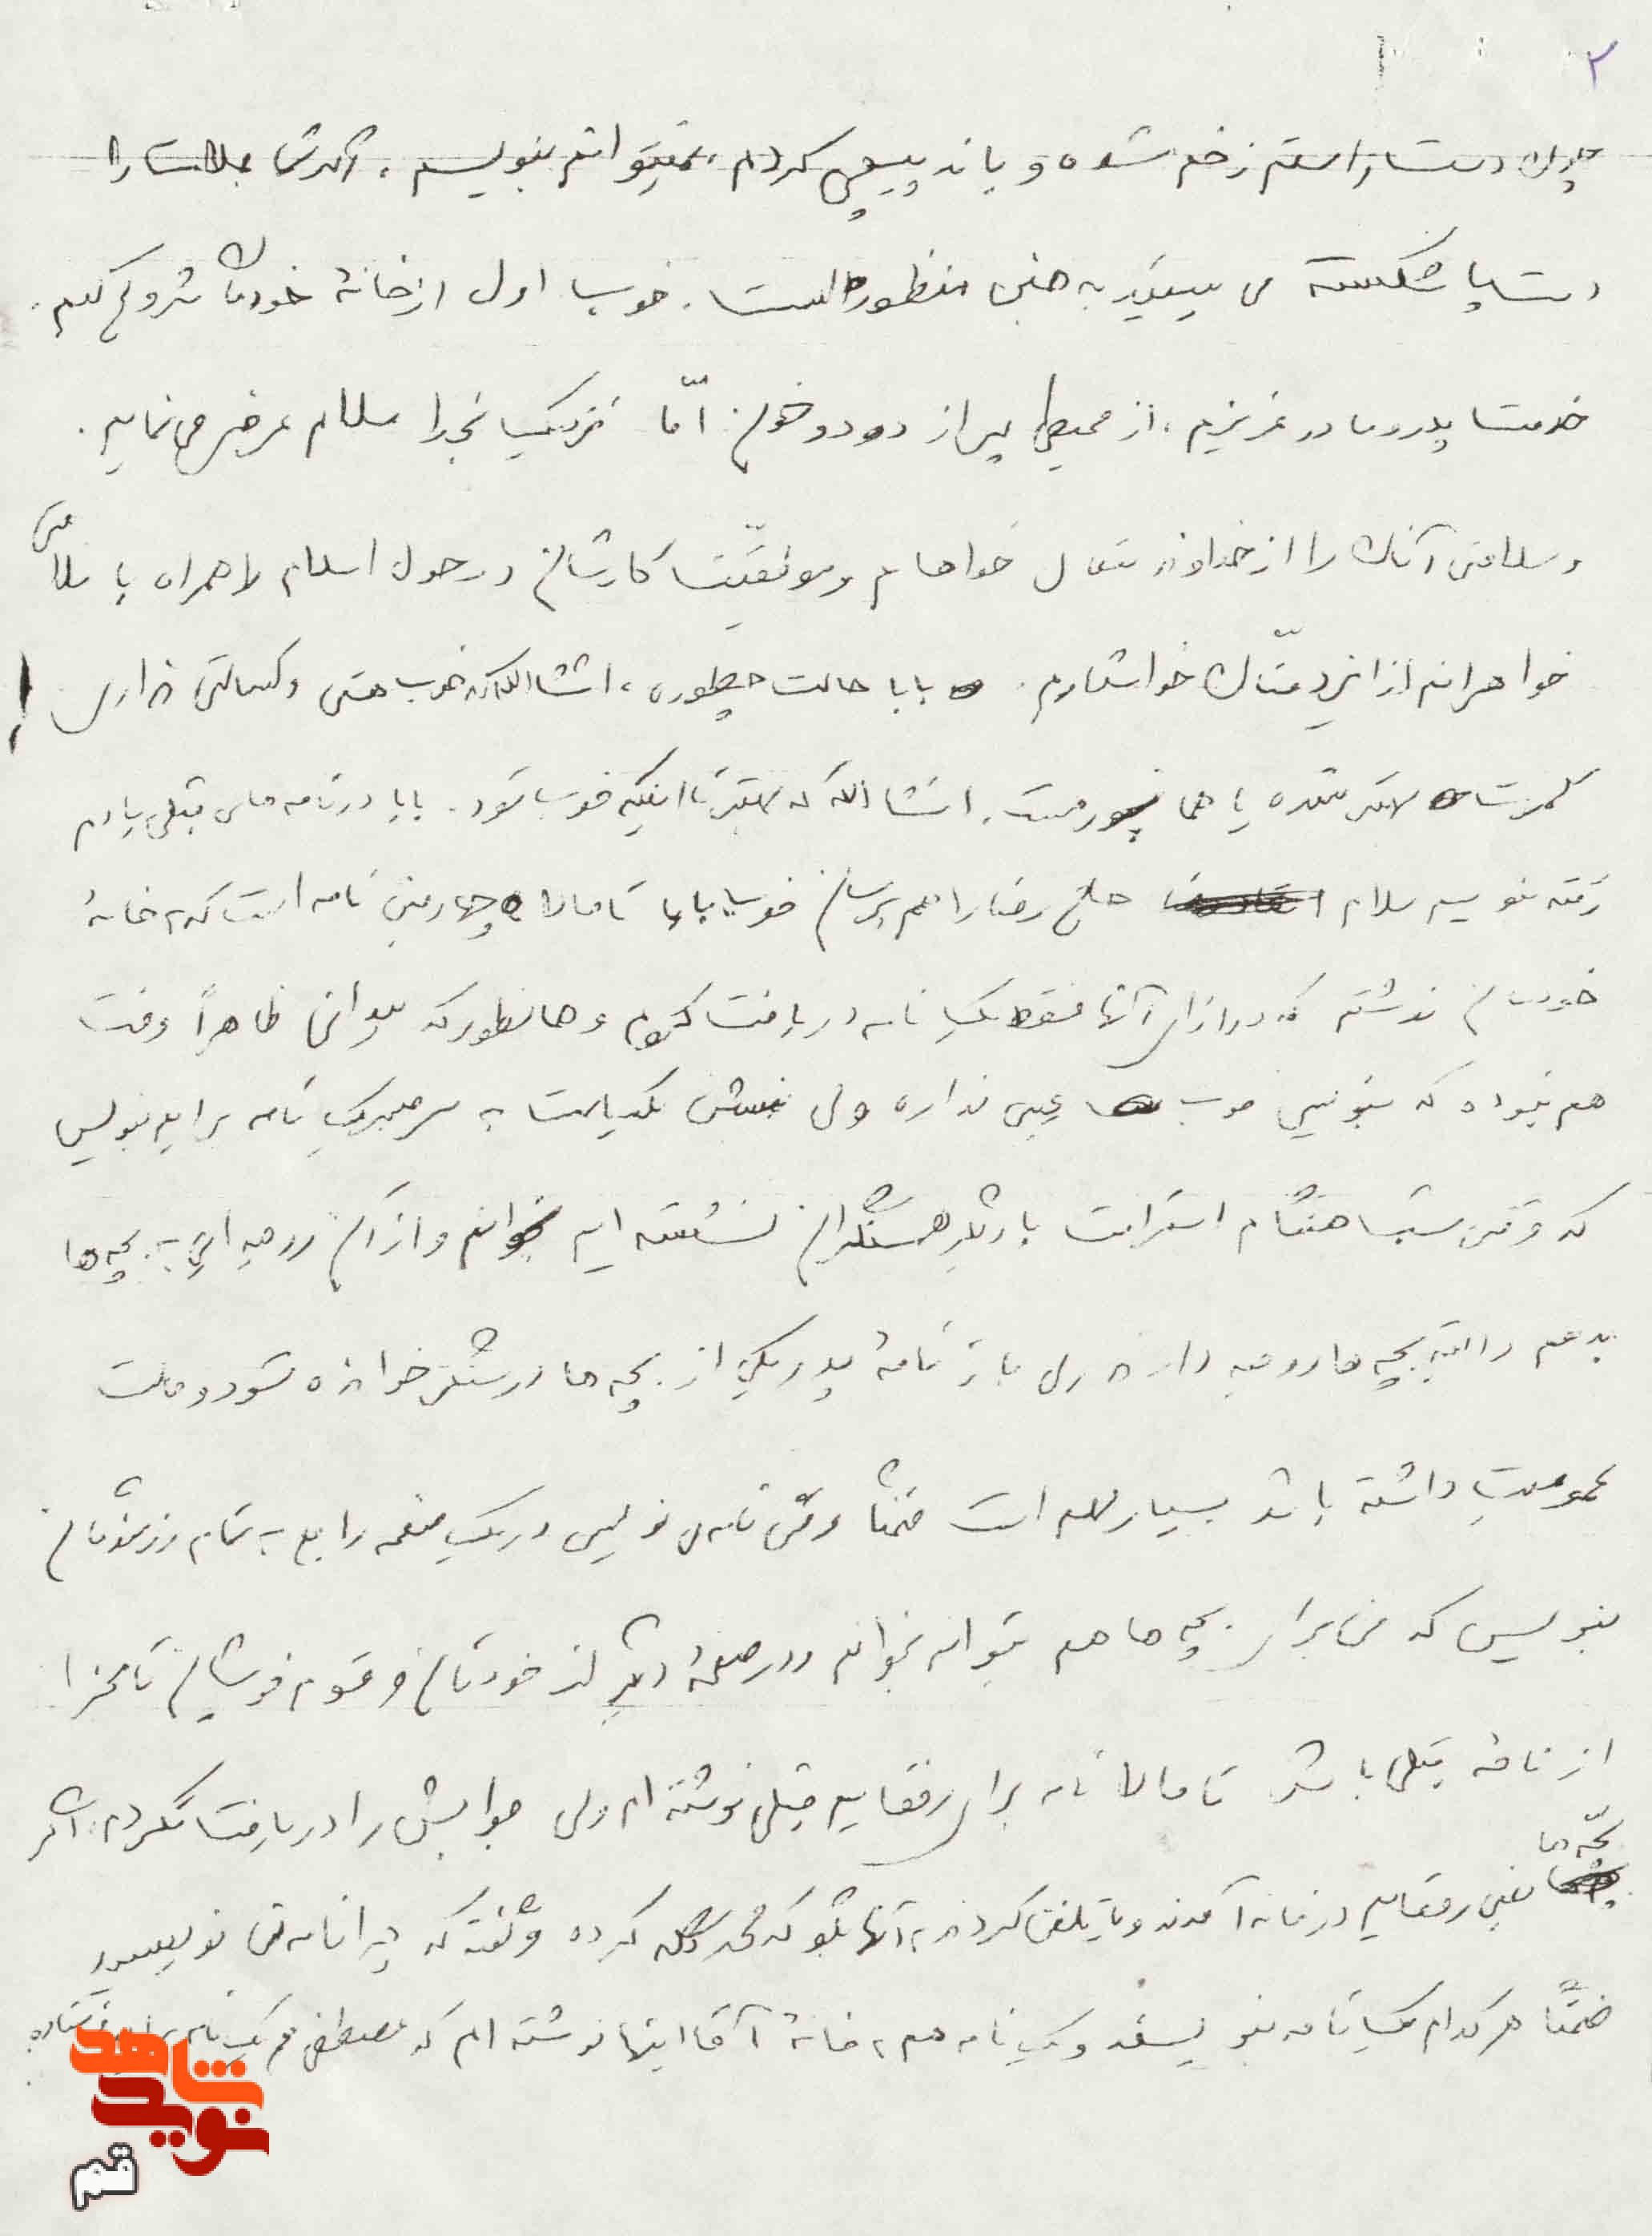 ۲
چون دست راستم زخم شده و باند پیچی کردم، نمیتوانم بنویسم، اگر شما کلمات را
دست پا شکسته می بینید به همین منظور است. خوب اول از خانهٔ خودمان شروع کنم.
خدمت پدر و مادر عزیزم، از محیطی پر از دود و خون اما نزدیک بخدا سلام عرض می نمایم.
و سلامتی آنان را از خداوند متعال خواهانم و موفقیت کارشان در حول اسلام را همراه با سلامتی
خواهرانم از ایزد منّان خواستارم. بابا حالت چطوره، انشااله که خوب هستی و کسالتی نداری
کمرت بهتر شده یا همانجورست. انشااله که بهتر تا اینکه خوب شود. بابا در نامه های قبلی یادم
رفته بنویسم سلام حاج رضا را هم برسان خوب بابا تا حالا چهارمین نامه است که به خانهٔ
خودمان نوشتم که در ازای آنها فقط یک نامه دریافت کردم و همانطور که میدانی ظاهراً وقت
هم نبوده که بنویسی خوب عیبی نداره ولی بنشین یکدست به سر یک نامه برایم بنویس
که وقتی شب هنگام استراحت با دیگر همسنگران نشسته ایم بخوانم و از آن روحیه ای به بچه ها
بدهم البته بچه ها روحیه دارند ولی باز نامهٔ پدر یکی از بچه ها در سنگر خوانده شود و حالت
عمومیت داشته باشد بسیار مهم است ضمناً وقتی نامه می نویسی در یک صفحه راجع به تمام رزمندگان
بنویس که من برای بچه ها هم بتوانم بخوانم و در صفحهٔ دیگر از خودتان و قوم خویشان تا مجزا
از نامه قبلی باشد تا حالا نامه برای رفقایم خیلی نوشته ام ولی جوابش را دریافت نکردم، اگر
بچّه ها یعنی رفقایم در خانه آمدند و یا تلفن کردند به آنها بگو که محمد گله کرده و گفته که چرا نامه نمی نویسید
ضمناً هر کدام یک نامه بنویسند و یک نامه هم به خانهٔ آقا اینها نوشته ام که مصطفی هم یک نامه برایم فرستاده
نوید شاهد
قم